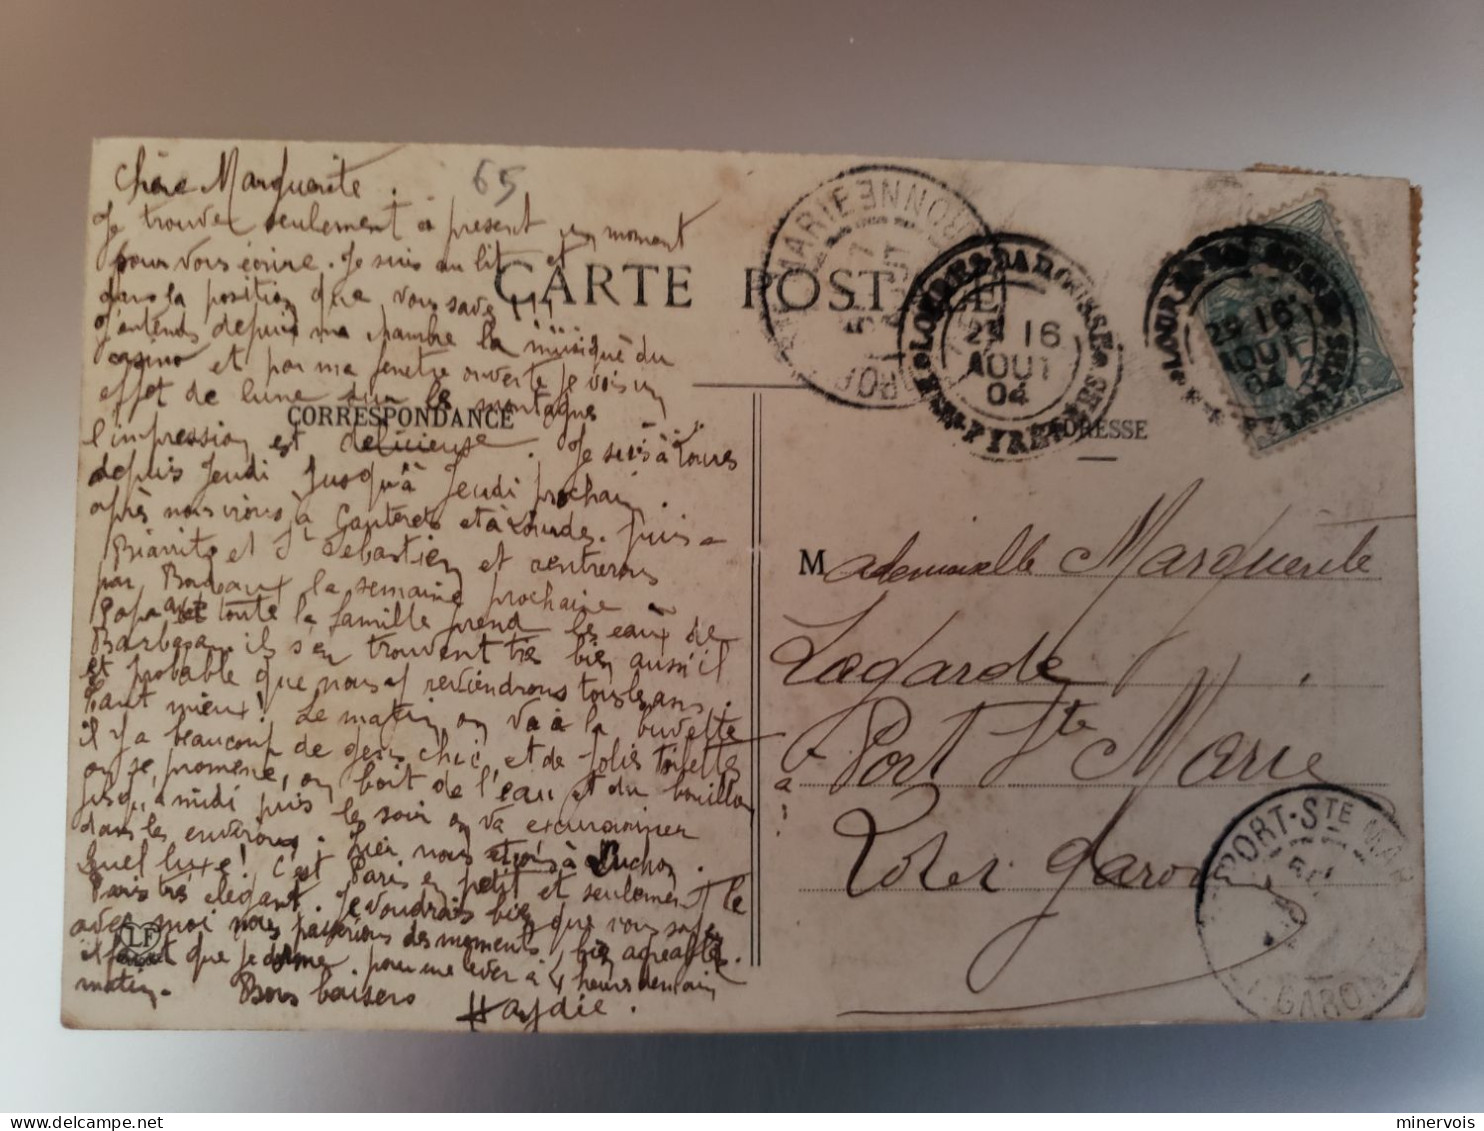 Chère Marguerite.
65
Je trouve seulement à présent un moment
pour vous écrire. Je suis au lit et
dans la position que vous savez !!!
J'entends depuis ma chambre la musique du
casino et par ma fenêtre ouverte je vois un
effet de lune sur les montagnes
l'impression est délicieuse. Je suis à
depuis Jeudi jusqu'à Jeudi prochain.
après nous irons à Cauterets et à Lourdes. Puis
Biarritz et St Sébastien et rentrerons
par Bordeaux la semaine prochaine
Papa et toute la famille prend les eaux de
Barbazan ils s'en trouvent très bien aussi il
et probable que nous y reviendrons tous les ans.
Tant mieux! Le matin on va à la buvette
il y a beaucoup de gens chic, et de jolies toilettes
on se promène, on boit de l'eau et du bouillon
jusqu'à midi puis le soir on va excursionner
dans les environs. Hier nous à Luchon.
Quel luxe! C'est Paris en petit et seulement le
Paris très élégant. Je voudrais bien que vous soyez
avec moi nous passerions des moments bien agréables.
il faut que je dorme pour me lever à 4 heures demain
matin. Bons baisers
Haydie.
CARTE POSTALE
CORRESPONDANCE
ADRESSE
LF
PORT STE MARIE
GARONNE
LOURDES PAROISSE
16
AOUT
04
HTES PYRENEES
LOURDES
16
AOUT
04
Mademoiselle Marguerite
Lagarde
à Port Ste Marie
Lot et Garonne
PORT-STE MARIE
GARONNE
minervois